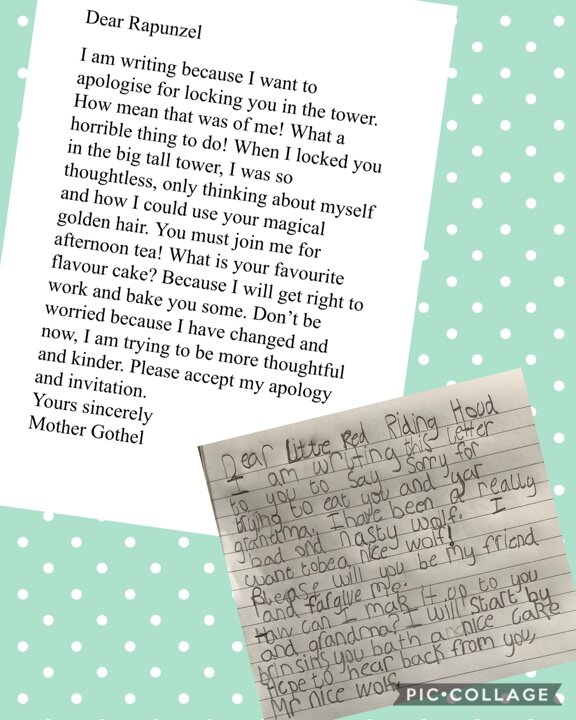 Dear Rapunzel
I am writing because I want to
apologise for locking you in the tower.
How mean that was of me! What a
horrible thing to do! When I locked you
in the big tall tower, I was so
thoughtless, only thinking about myself
and how I could use your magical
golden hair. You must join me for
afternoon tea! What is your favourite
flavour cake? Because I will get right to
work and bake you some. Don't be
worried because I have changed and
now, I am trying to be more thoughtful
and kinder. Please accept my apology
and invitation.
Yours sincerely
Mother Gothel
Dear Little Red Riding Hood
I am writing this letter
to you to say sorry for
trying to eat you and yar
grandma, I have been a really
bad and nasty wolf. I
want to be a nice wolf!
Please will you be my friend
and fargive me.
How can I mak it up to you
and grandma? I will start by
you bath a nice cake
Hope to hear back from you,
Mr nice wolf.
PIC•COLLAGE